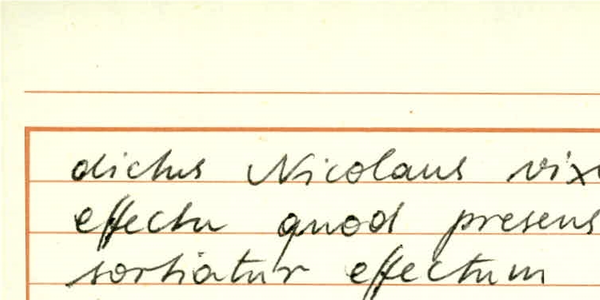 dictus Nicolaus vix
effectu quod presens
sortiatur effectum